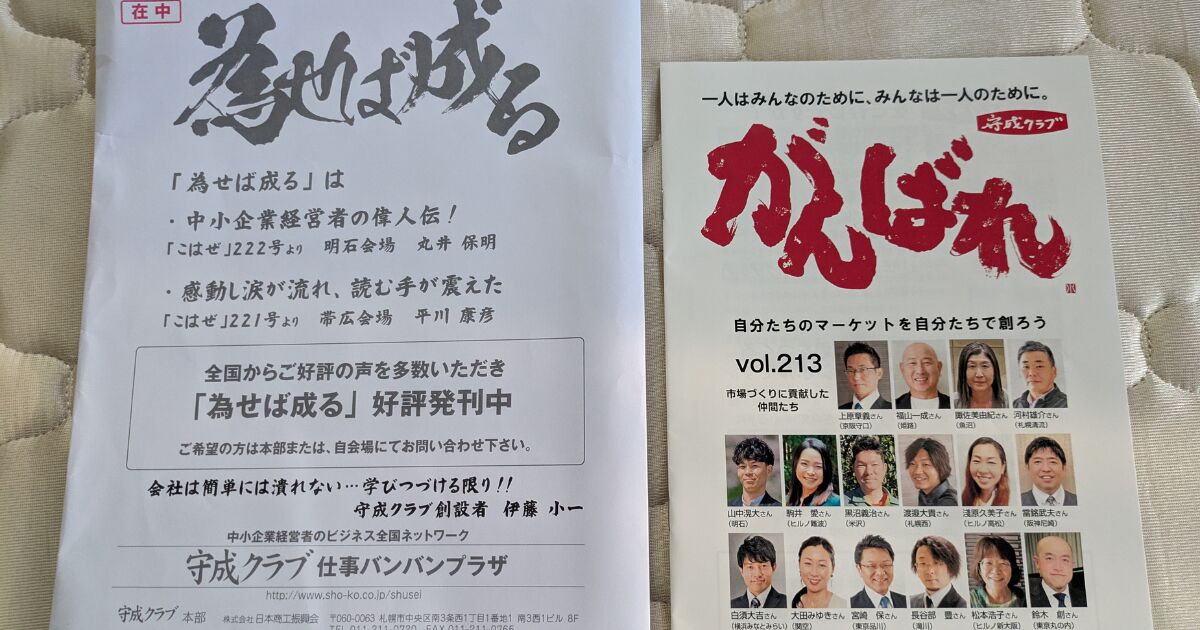 在中
為せば成る
「為せば成る」は
・中小企業経営者の偉人伝!
「こはぜ」222号より 明石会場 丸井 保明
・感動し涙が流れ、読む手が震えた
「こはぜ」221号より 帯広会場 平川 康彦
全国からご好評の声を多数いただき
「為せば成る」好評発刊中
ご希望の方は本部または、自会場にてお問い合わせ下さい。
会社は簡単には潰れない…学びつづける限り!!
守成クラブ創設者 伊藤 小一
中小企業経営者のビジネス全国ネットワーク
守成クラブ 仕事バンバンプラザ
http://www.sho-ko.co.jp/shusei
守成クラブ 本部 株式会社 日本商工振興会 〒060-0063 札幌市中央区南3条西1丁目1番地1 南3西1ビル 8F
TEL 011-211-0720 FAX 011-211-0765
一人はみんなのために、みんなは一人のために。
守成クラブ
がんばれ
自分たちのマーケットを自分たちで創ろう
vol.213
市場づくりに貢献した
仲間たち
上原章義さん 福山一成さん 諏佐美由紀さん 河村雄介さん
(京阪守口) (姫路) (魚沼) (札幌清流)
山中滉大さん 駒井 愛さん 黒沼義治さん 渡邉大貴さん 淺原久美子さん 當銘武夫さん
(明石) (ヒルノ難波) (米沢) (札幌西) (ヒルノ高松) (阪神尼崎)
白須大吉さん 大田みゆきさん 宮崎 保さん 長谷部 豊さん 松本浩子さん 鈴木 創さん
(横浜みなとみらい) (関空) (東京品川) (滝川) (ヒルノ新大阪) (東京丸の内)